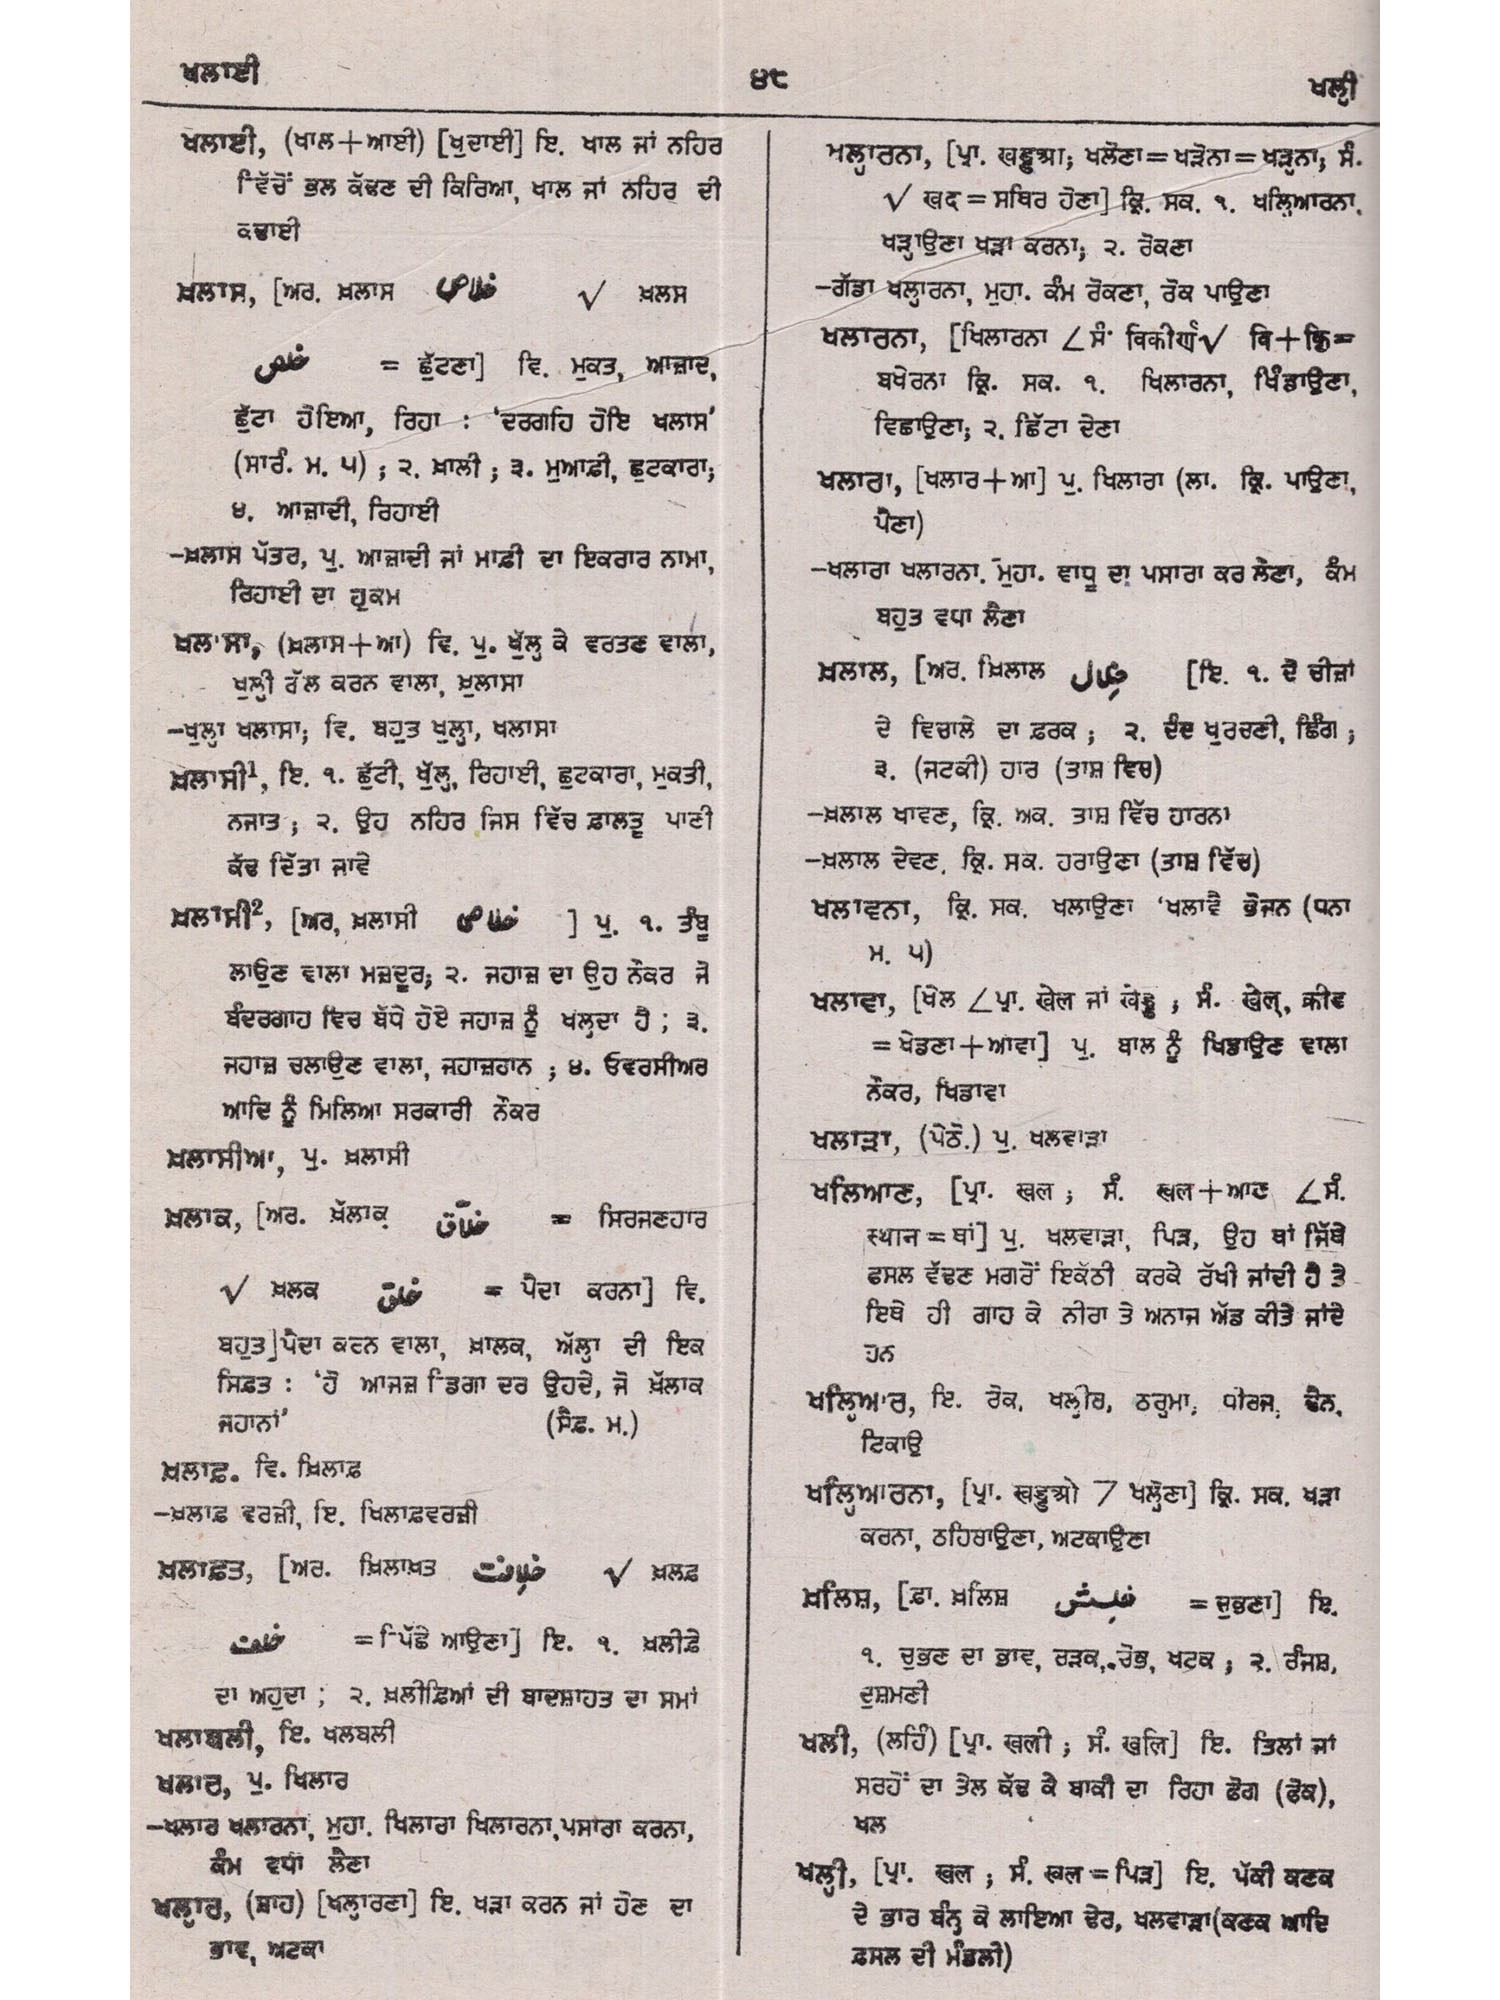 ਖਲਾਈ
੪੮
ਖਲ੍ਹੀ
ਖਲਾਈ, (ਖਾਲ+ਆਈ) [ਖੁਦਾਈ] ਇ. ਖਾਲ ਜਾਂ ਨਹਿਰ
ਵਿੱਚੋਂ ਭਲ ਕੱਢਣ ਦੀ ਕਿਰਿਆ, ਖਾਲ ਜਾਂ ਨਹਿਰ ਦੀ
ਕਢਾਈ
ਖ਼ਲਾਸ, [ਅਰ. ਖ਼ਲਾਸ خلاص √ ਖ਼ਲਸ
خلص = ਛੁੱਟਣਾ] ਵਿ. ਮੁਕਤ, ਆਜ਼ਾਦ,
ਛੁੱਟਾ ਹੋਇਆ, ਰਿਹਾ : ‘ਦਰਗਹਿ ਹੋਇ ਖਲਾਸ’
(ਸਾਰੰ. ਮ. ੫) ; ੨. ਖ਼ਾਲੀ ; ੩. ਮੁਆਫ਼ੀ, ਛੁਟਕਾਰਾ;
੪. ਆਜ਼ਾਦੀ, ਰਿਹਾਈ
–ਖ਼ਲਾਸ ਪੱਤਰ, ਪੁ. ਆਜ਼ਾਦੀ ਜਾਂ ਮਾਫ਼ੀ ਦਾ ਇਕਰਾਰ ਨਾਮਾ,
ਰਿਹਾਈ ਦਾ ਹੁਕਮ
ਖਲਾਸਾ, (ਖ਼ਲਾਸ+ਆ) ਵਿ. ਪੁ. ਖੁੱਲ੍ਹ ਕੇ ਵਰਤਣ ਵਾਲਾ,
ਖੁਲ੍ਹੀ ਗੱਲ ਕਰਨ ਵਾਲਾ, ਖ਼ੁਲਾਸਾ
–ਖੁਲ੍ਹਾ ਖਲਾਸਾ; ਵਿ. ਬਹੁਤ ਖੁਲ੍ਹਾ, ਖਲਾਸਾ
ਖ਼ਲਾਸੀ¹, ਇ. ੧. ਛੁੱਟੀ, ਖੁੱਲ੍ਹ, ਰਿਹਾਈ, ਛੁਟਕਾਰਾ, ਮੁਕਤੀ,
ਨਜਾਤ ; ੨. ਉਹ ਨਹਿਰ ਜਿਸ ਵਿੱਚ ਫ਼ਾਲਤੂ ਪਾਣੀ
ਕੱਢ ਦਿੱਤਾ ਜਾਵੇ
ਖ਼ਲਾਸੀ², [ਅਰ, ਖ਼ਲਾਸੀ خلاص ] ਪੁ. ੧. ਤੰਬੂ
ਲਾਉਣ ਵਾਲਾ ਮਜ਼ਦੂਰ; ੨. ਜਹਾਜ਼ ਦਾ ਉਹ ਨੌਕਰ ਜੋ
ਬੰਦਰਗਾਹ ਵਿਚ ਬੱਧੇ ਹੋਏ ਜਹਾਜ਼ ਨੂੰ ਖਲ੍ਹਦਾ ਹੈ ; ੩.
ਜਹਾਜ਼ ਚਲਾਉਣ ਵਾਲਾ, ਜਹਾਜ਼ਰਾਨ ; ੪. ਓਵਰਸੀਅਰ
ਆਦਿ ਨੂੰ ਮਿਲਿਆ ਸਰਕਾਰੀ ਨੌਕਰ
ਖ਼ਲਾਸੀਆ, ਪੁ. ਖ਼ਲਾਸੀ
ਖ਼ਲਾਕ, [ਅਰ. ਖ਼ੱਲਾਕ਼ خلّاق = ਸਿਰਜਣਹਾਰ
√ ਖ਼ਲਕ خلق = ਪੈਦਾ ਕਰਨਾ] ਵਿ.
ਬਹੁਤ]ਪੈਦਾ ਕਰਨ ਵਾਲਾ, ਖ਼ਾਲਕ, ਅੱਲ੍ਹਾ ਦੀ ਇਕ
ਸਿਫ਼ਤ : ‘ਹੋ ਆਜਜ਼ ਡਿਗਾ ਦਰ ਉਹਦੇ, ਜੋ ਖ਼ੱਲਾਕ
ਜਹਾਨਾਂ’ (ਸੈਫ਼. ਮ.)
ਖ਼ਲਾਫ਼. ਵਿ. ਖ਼ਿਲਾਫ਼
–ਖ਼ਲਾਫ਼ ਵਰਜ਼ੀ, ਇ. ਖਿਲਾਫ਼ਵਰਜ਼ੀ
ਖ਼ਲਾਫ਼ਤ, [ਅਰ. ਖ਼ਿਲਾਖ਼ਤ خلافت √ ਖ਼ਲਫ਼
خلفت = ਪਿੱਛੇ ਆਉਣਾ] ਇ. ੧. ਖ਼ਲੀਫ਼ੇ
ਦਾ ਅਹੁਦਾ ; ੨. ਖ਼ਲੀਫ਼ਿਆਂ ਦੀ ਬਾਦਸ਼ਾਹਤ ਦਾ ਸਮਾਂ
ਖਲਾਬਲੀ, ਇ. ਖਲਬਲੀ
ਖਲਾਰ, ਪੁ. ਖਿਲਾਰ
–ਖਲਾਰ ਖਲਾਰਨਾ, ਮੁਹਾ. ਖਿਲਾਰਾ ਖਿਲਾਰਨਾ,ਪਸਾਰਾ ਕਰਨਾ,
ਕੰਮ ਵਧਾ ਲੈਣਾ
ਖਲ੍ਹਾਰ, (ਸ਼ਾਹ) [ਖਲ੍ਹਾਰਣਾ] ਇ. ਖੜਾ ਕਰਨ ਜਾਂ ਹੋਣ ਦਾ
ਭਾਵ, ਅਟਕਾ
ਖਲ੍ਹਾਰਨਾ, [ਪ੍ਰਾ. खड्डुआ; ਖਲੋਣਾ=ਖੜੋਨਾ=ਖੜ੍ਹਨਾ; ਸੰ.
√ खद = ਸਥਿਰ ਹੋਣਾ] ਕ੍ਰਿ. ਸਕ. ੧. ਖਲ੍ਹਿਆਰਨਾ,
ਖੜ੍ਹਾਉਣਾ ਖੜਾ ਕਰਨਾ; ੨. ਰੋਕਣਾ
–ਗੱਡਾ ਖਲ੍ਹਾਰਨਾ, ਮੁਹਾ. ਕੰਮ ਰੋਕਣਾ, ਰੋਕ ਪਾਉਣਾ
ਖਲਾਰਨਾ, [ਖਿਲਾਰਨਾ ∠ਸੰ विकीर्ण√ वि+कृ=
ਬਖੇਰਨਾ ਕ੍ਰਿ. ਸਕ. ੧. ਖਿਲਾਰਨਾ, ਖਿੰਡਾਉਣਾ,
ਵਿਛਾਉਣਾ; ੨. ਛਿੱਟਾ ਦੇਣਾ
ਖਲਾਰਾ, [ਖਲਾਰ+ਆ] ਪੁ. ਖਿਲਾਰਾ (ਲਾ. ਕ੍ਰਿ. ਪਾਉਣਾ,
ਪੈਣਾ)
–ਖਲਾਰਾ ਖਲਾਰਨਾ. ਮੁਹਾ. ਵਾਧੂ ਦਾ ਪਸਾਰਾ ਕਰ ਲੈਣਾ, ਕੰਮ
ਬਹੁਤ ਵਧਾ ਲੈਣਾ
ਖ਼ਲਾਲ, [ਅਰ. ਖ਼ਿਲਾਲ خِلال [ਇ. ੧. ਦੋ ਚੀਜ਼ਾਂ
ਦੇ ਵਿਚਾਲੇ ਦਾ ਫ਼ਰਕ ; ੨. ਦੰਦ ਖੁਰਚਣੀ, ਛਿੰਗ ;
੩. (ਜਟਕੀ) ਹਾਰ (ਤਾਸ਼ ਵਿਚ)
–ਖ਼ਲਾਲ ਖਾਵਣ, ਕ੍ਰਿ. ਅਕ. ਤਾਸ਼ ਵਿੱਚ ਹਾਰਨਾ
–ਖ਼ਲਾਲ ਦੇਵਣ, ਕ੍ਰਿ. ਸਕ. ਹਰਾਉਣਾ (ਤਾਸ਼ ਵਿੱਚ)
ਖਲਾਵਨਾ, ਕ੍ਰਿ. ਸਕ. ਖਲਾਉਣਾ ‘ਖਲਾਵੈ ਭੋਜਨ (ਧਨਾ
ਮ. ੫)
ਖਲਾਵਾ, [ਖੇਲ ∠ਪ੍ਰਾ. खेल ਜਾਂ खेड्ड ; ਸੰ. खेल्, क्रीड
=ਖੇਡਣਾ+ਆਵਾ] ਪੁ. ਬਾਲ ਨੂੰ ਖਿਡਾਉਣ ਵਾਲਾ
ਨੌਕਰ, ਖਿਡਾਵਾ
ਖਲਾੜਾ, (ਪੋਠੋ.) ਪੁ. ਖਲਵਾੜਾ
ਖਲਿਆਣ, [ਪ੍ਰਾ. खल ; ਸੰ. खल+ਆਣ ∠ਸੰ.
स्थान=ਥਾਂ] ਪੁ. ਖਲਵਾੜਾ, ਪਿੜ, ਉਹ ਥਾਂ ਜਿੱਥੇ
ਫਸਲ ਵੱਢਣ ਮਗਰੋਂ ਇਕੱਠੀ ਕਰਕੇ ਰੱਖੀ ਜਾਂਦੀ ਹੈ ਤੇ
ਇਥੇ ਹੀ ਗਾਹ ਕੇ ਨੀਰਾ ਤੇ ਅਨਾਜ ਅੱਡ ਕੀਤੇ ਜਾਂਦੇ
ਹਨ
ਖਲ੍ਹਿਆਰ, ਇ. ਰੋਕ, ਖਲ੍ਹੀਰ, ਠਰ੍ਹਮਾ, ਧੀਰਜ, ਚੈਨ,
ਟਿਕਾਉ
ਖਲ੍ਹਿਆਰਨਾ, [ਪ੍ਰਾ. खड्डुओ 7 ਖਲ੍ਹੋਣਾ] ਕ੍ਰਿ. ਸਕ. ਖੜਾ
ਕਰਨਾ, ਠਹਿਰਾਉਣਾ, ਅਟਕਾਉਣਾ
ਖ਼ਲਿਸ਼, [ਫ਼ਾ. ਖ਼ਲਿਸ਼ خلش =ਚੁਭਣਾ] ਇ.
੧. ਚੁਭਣ ਦਾ ਭਾਵ, ਰੜਕ, ਚੋਭ, ਖਟਕ ; ੨. ਰੰਜਸ਼,
ਦੁਸ਼ਮਣੀ
ਖਲੀ, (ਲਹਿੰ) [ਪ੍ਰਾ. खली ; ਸੰ. खलि] ਇ. ਤਿਲਾਂ ਜਾਂ
ਸਰਹੋਂ ਦਾ ਤੇਲ ਕੱਢ ਕੇ ਬਾਕੀ ਦਾ ਰਿਹਾ ਫੋਗ (ਫੋਕ),
ਖਲ
ਖਲ੍ਹੀ, [ਪ੍ਰਾ. खल ; ਸੰ. खल=ਪਿੜ] ਇ. ਪੱਕੀ ਕਣਕ
ਦੇ ਭਾਰ ਬੰਨ੍ਹ ਕੇ ਲਾਇਆ ਢੇਰ, ਖਲਵਾੜਾ(ਕਣਕ ਆਦਿ
ਫ਼ਸਲ ਦੀ ਮੰਡਲੀ)